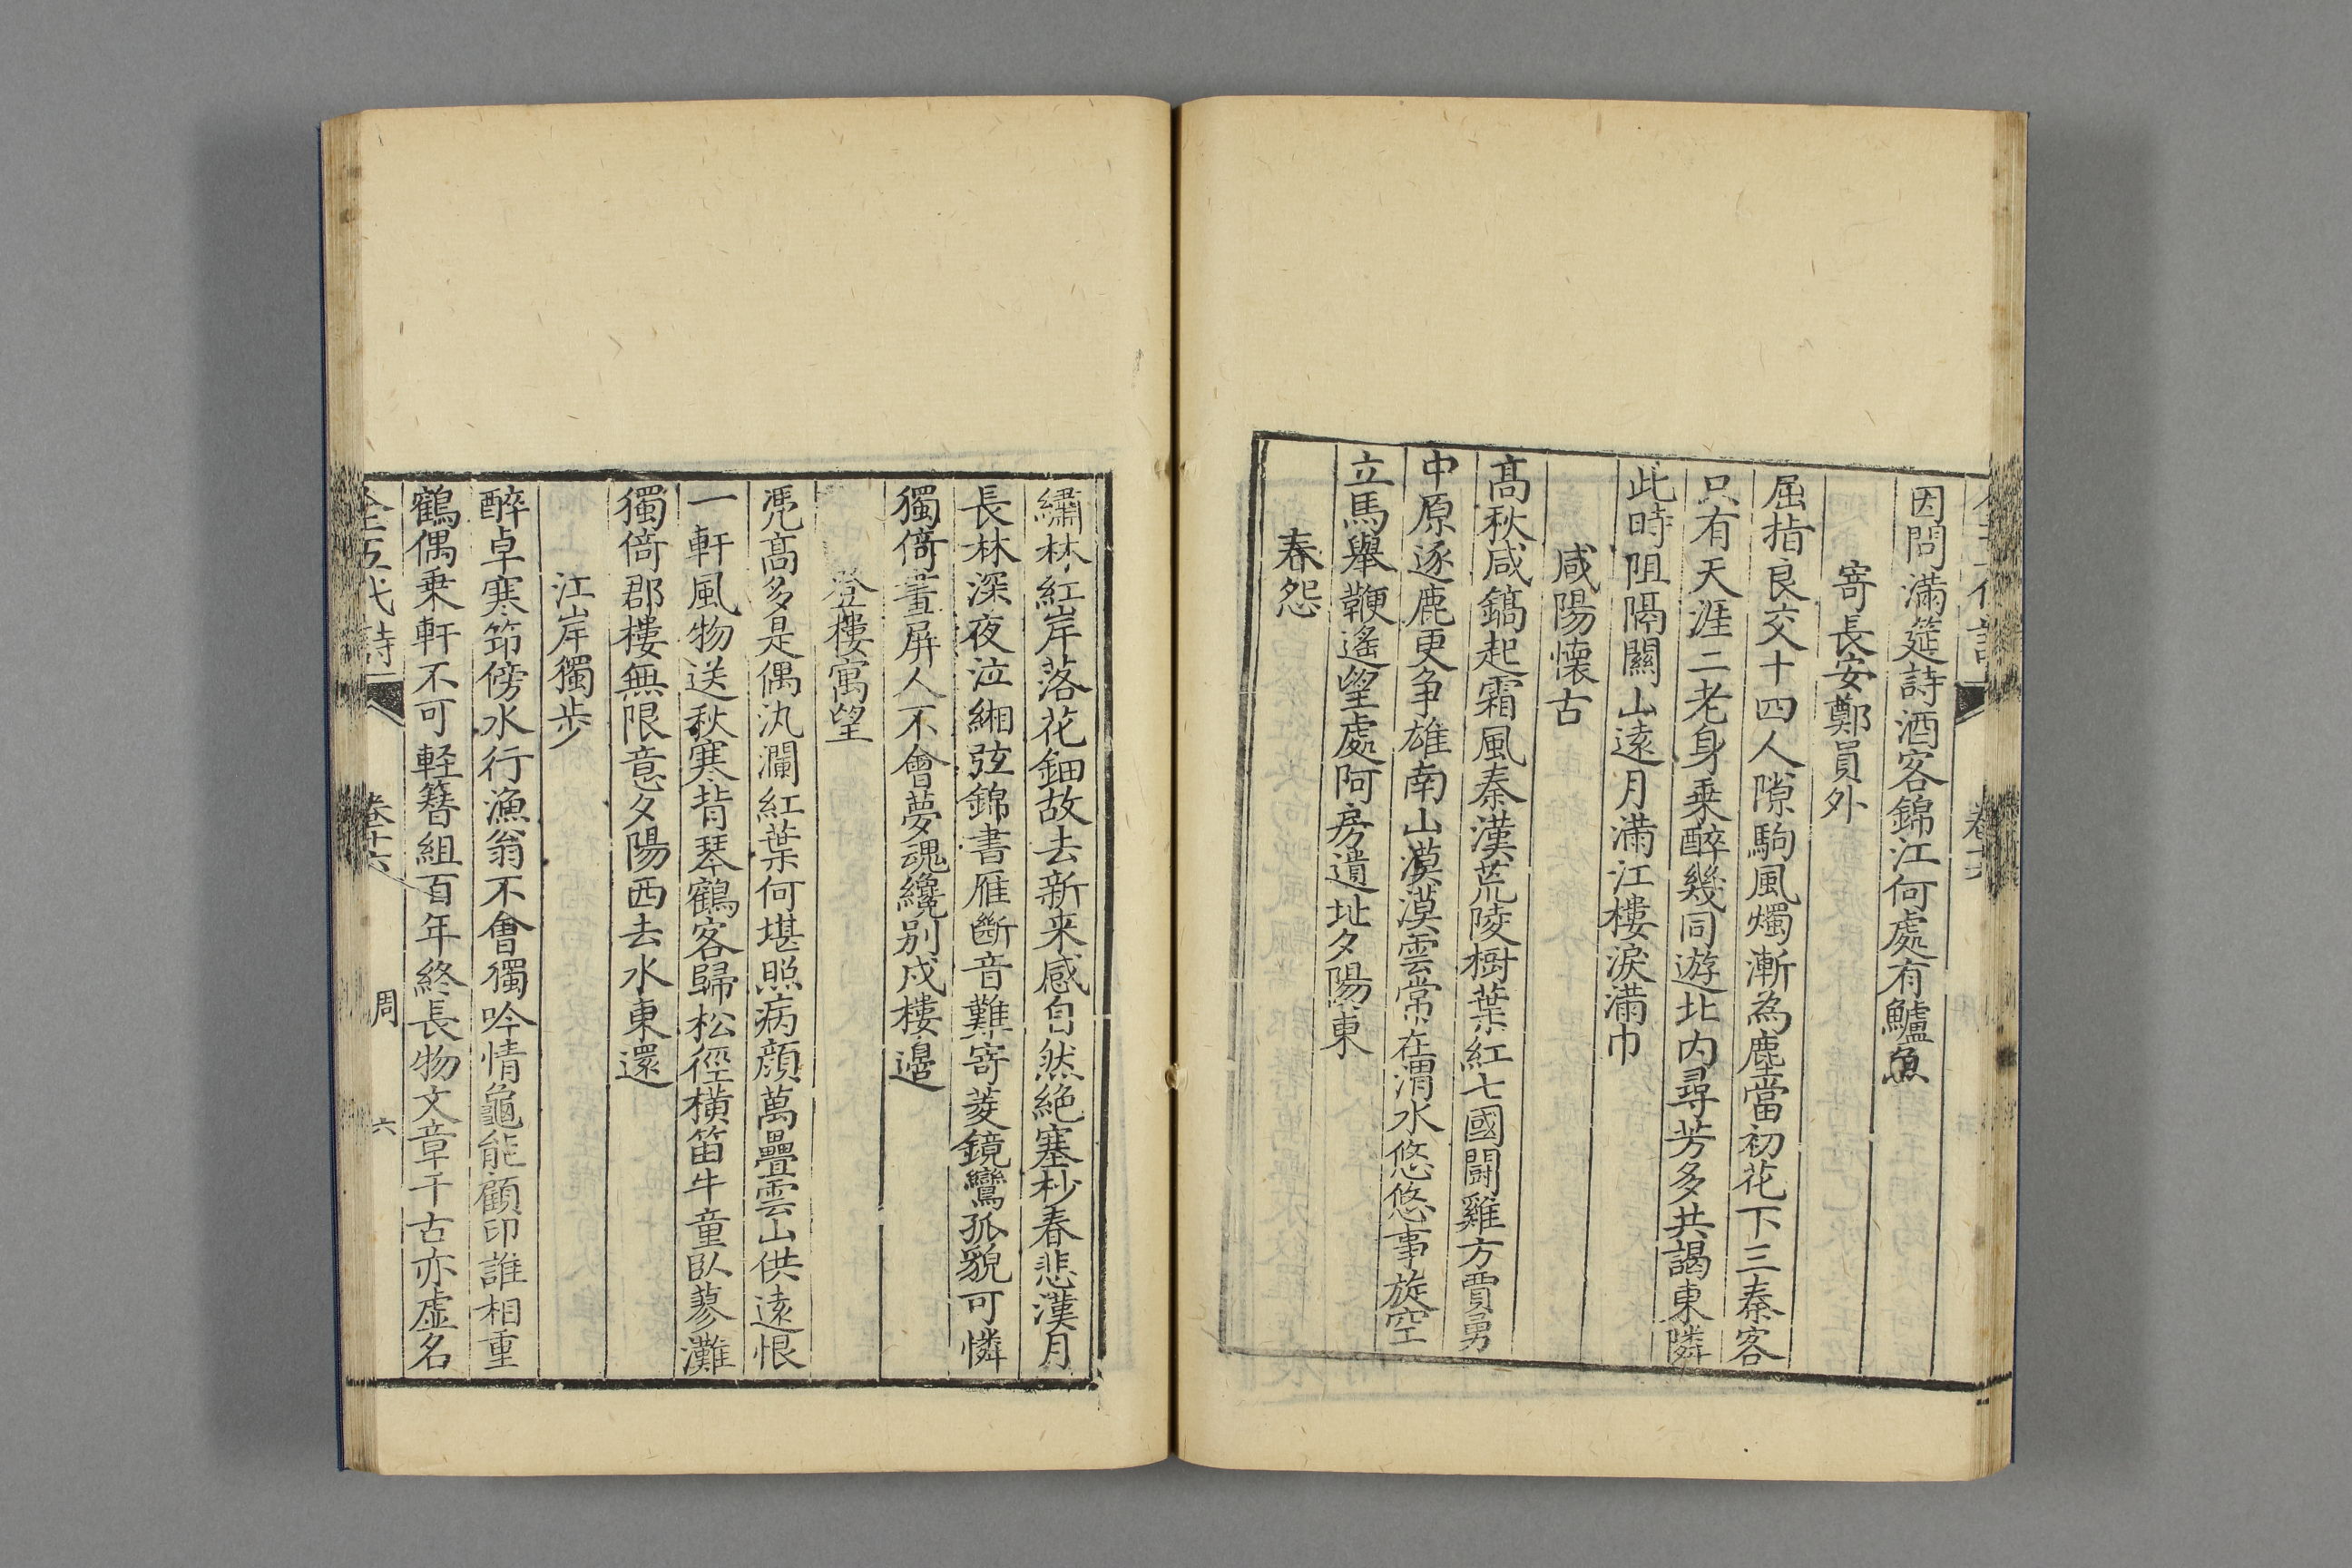 因問滿筵詩酒客錦江何處有鱸魚
寄長安鄭員外
屈指良交十四人隙駒風燭漸為塵當初花下三秦客
只有天涯二老身乗醉幾同遊北内尋芳多共謁東隣
此時阻隔關山逺月滿江樓淚滿巾
咸陽懷古
髙秋咸鎬起霜風秦漢荒陵樹葉紅七國鬪雞方賈勇
中原逐鹿更争雄南山漠漠雲常在渭水悠悠事旋空
立馬舉鞭遙望處阿房遺址夕陽東
春怨
繡林紅岸落花鈿故去新来感自然絶塞杪春悲漢月
長林深夜泣緗弦錦書雁斷音難寄菱鏡鸞孤貌可憐
獨倚畫屏人不會夢魂纔别戍樓邉
登樓寓望
凭髙多是偶汍瀾紅葉何堪照病顔萬疊雲山供逺恨
一軒風物送秋寒背琴鶴客歸松徑橫笛牛童臥蓼灘
獨倚郡樓無限意夕陽西去水東還
江岸獨歩
醉卓寒筇傍水行漁翁不會獨吟情龜能顧印誰相重
鶴偶乗軒不可軽簪組百年終長物文章千古亦虚名
全五代詩 卷十六 周 六